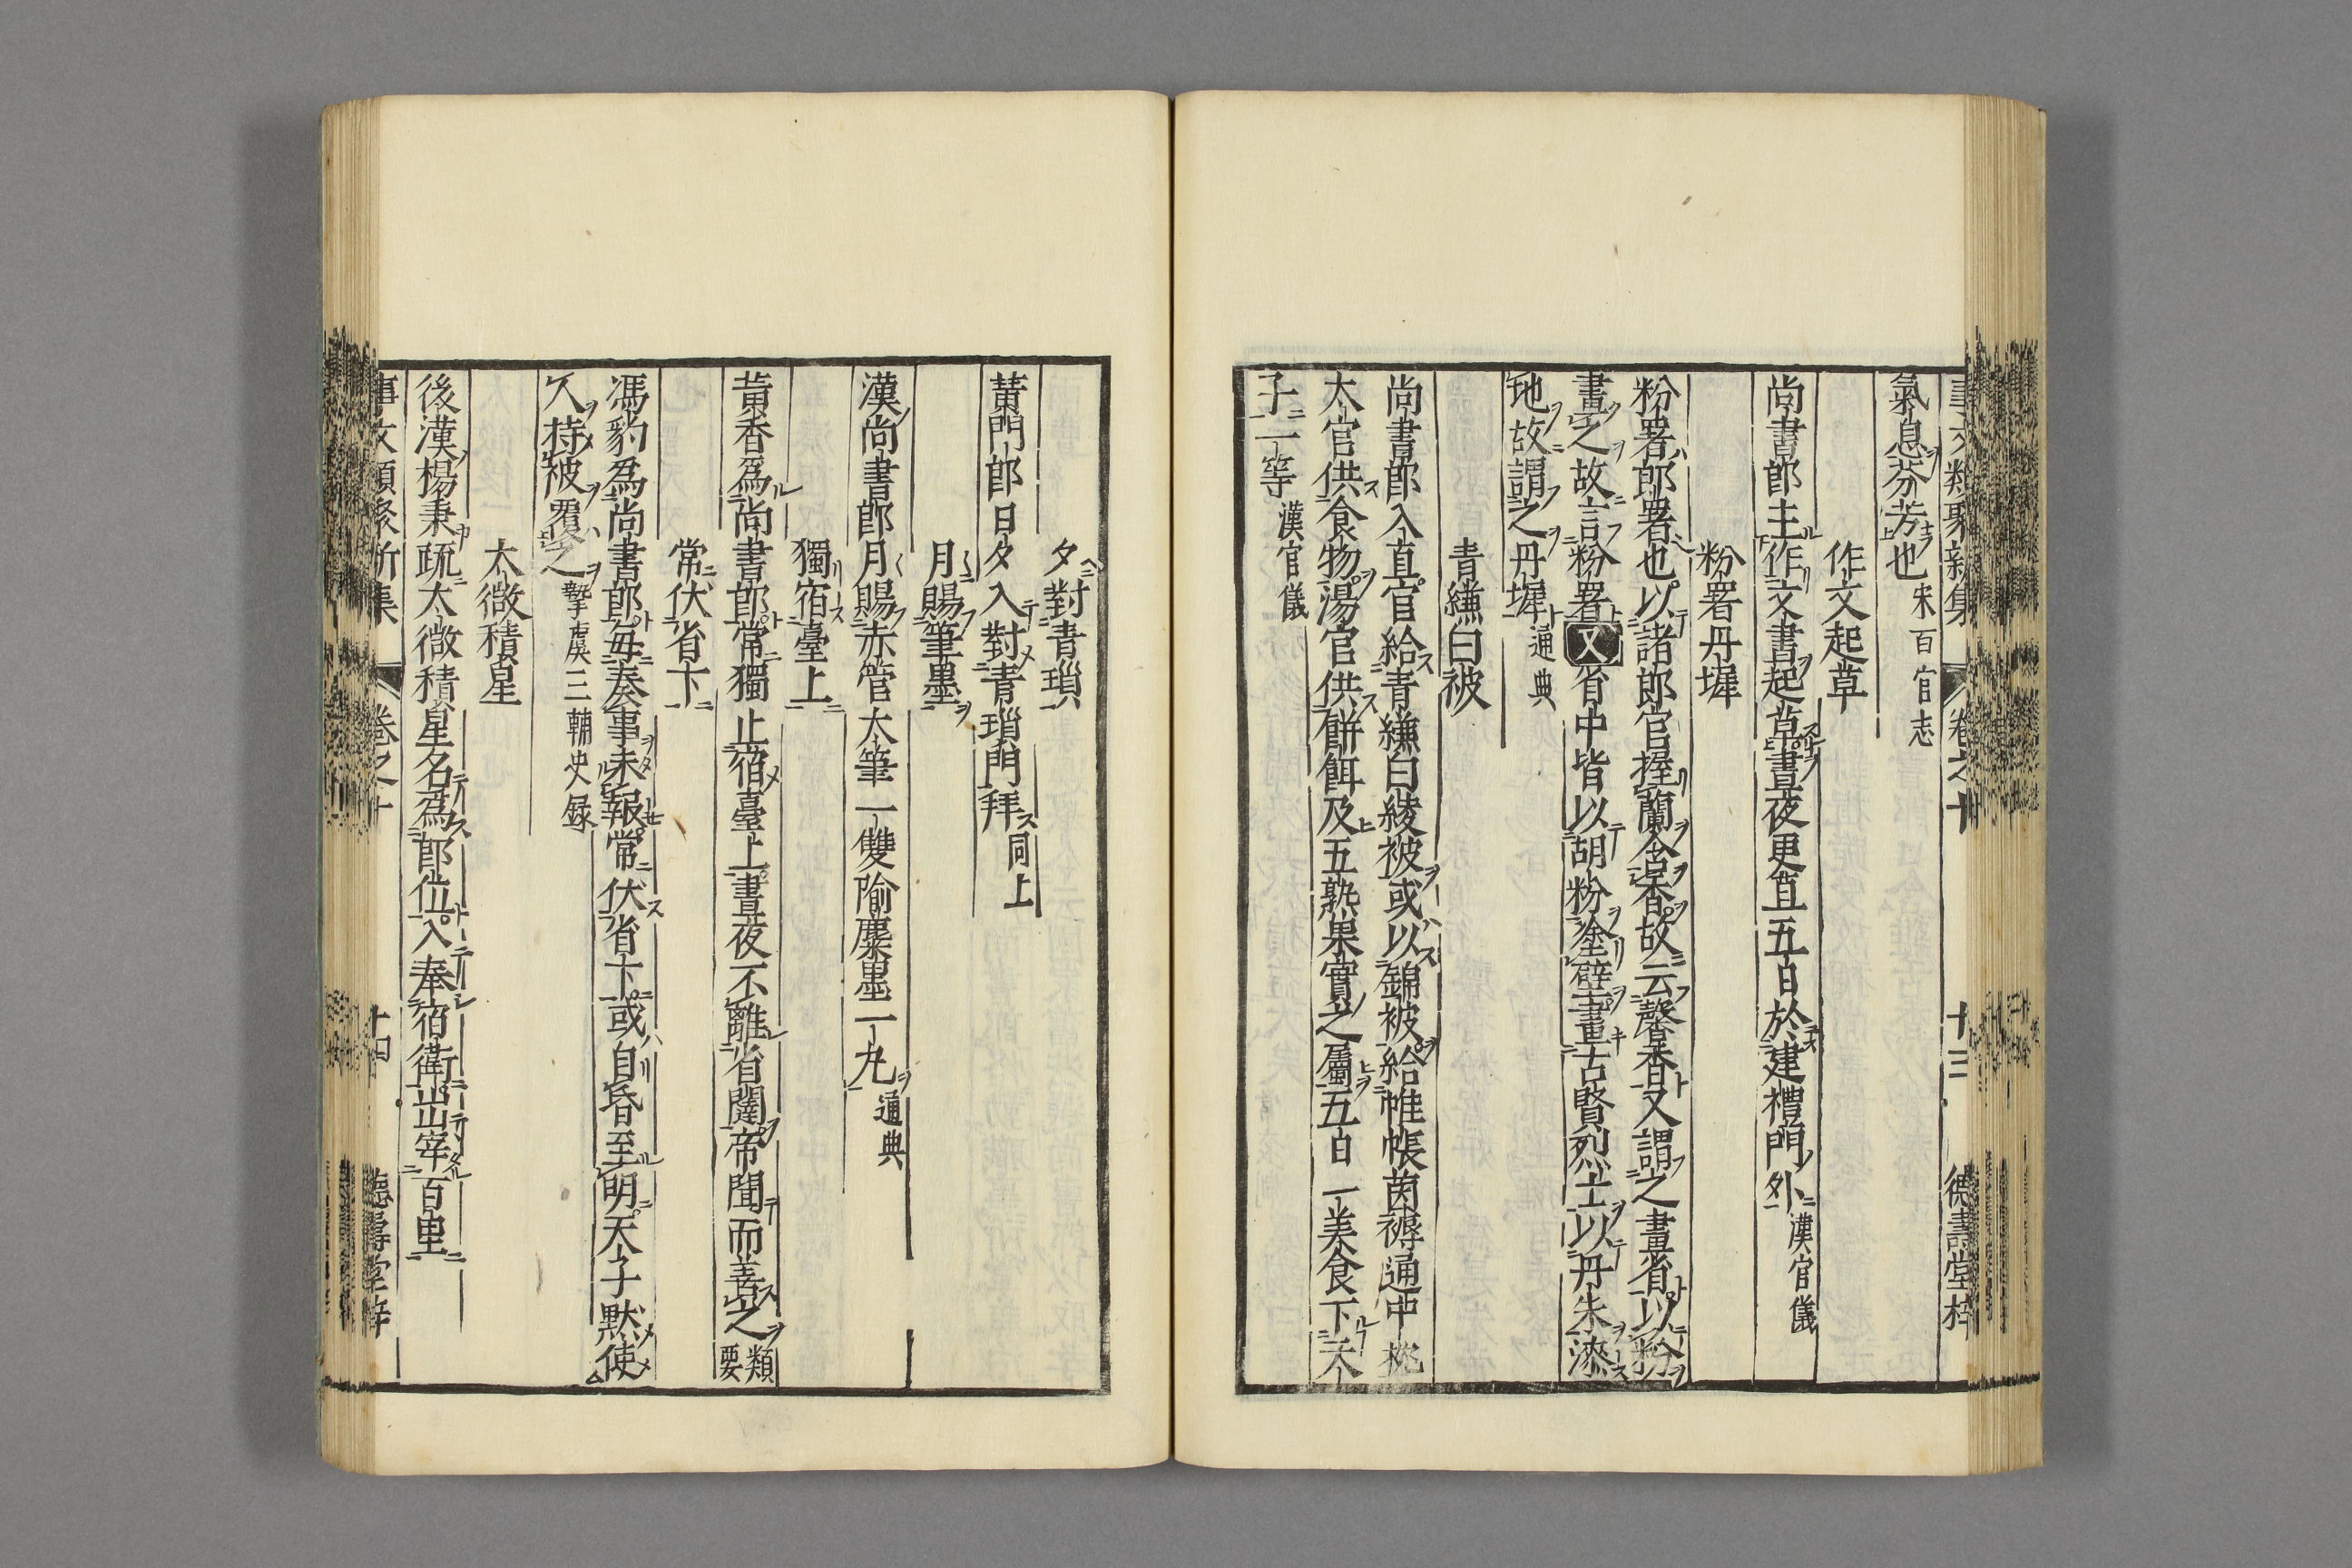 氣息芬芳也宋百官志
作文起草
尚書郎主作文書起草晝夜更直五日於建禮門外漢官儀
粉署丹墀
粉署郎署也以諸郎官握蘭含香故云馨香又謂之畫省以粉
畫之故言粉署又省中皆以胡粉塗壁畫古賢烈士以丹朱漆
地故謂之丹墀通典
青縑白被
尚書郎入直官給青縑白綾被或以錦被給帷帳茵褥通中枕
太官供食物湯官供餅餌及五熟果實之屬五日一美食下天
子一等漢官儀
夕對青瑣
黃門郎日夕入對青瑣門拜同上
月賜筆墨
漢尚書郎月賜赤管大筆一雙隃麋墨一丸通典
獨宿臺上
黃香爲尚書郎常獨止宿臺上晝夜不離省闥帝聞而善之類要
常伏省下
馮豹爲尚書郎每奏事未報常伏省下或自昏至明天子默使
人持被覆之摯虞三輔史録
太微積星
後漢楊秉疏太微積星名爲郎位入奉宿衛出宰百里
事文類聚新集 卷之十 十四